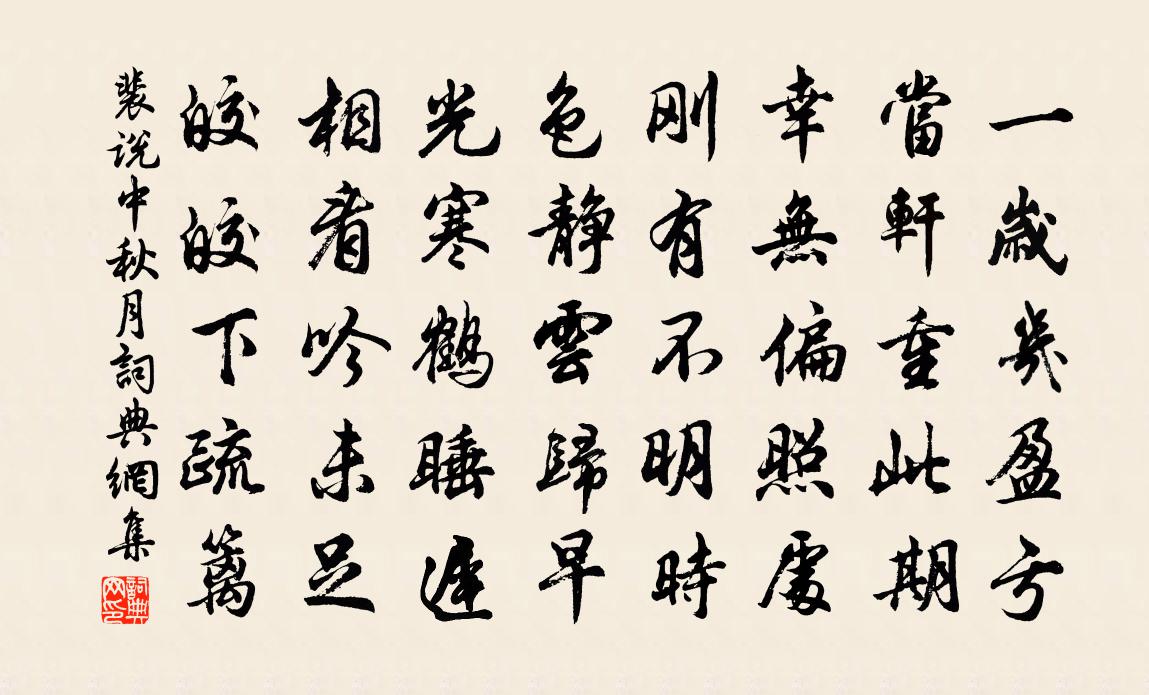 一歲幾盈虧
當軒重此期
幸無偏照處
剛有不明時
色靜雲歸早
光寒鶴睡遲
相看吟未足
皎皎下疏篱
裴说中秋月詞典網集
詞典网印